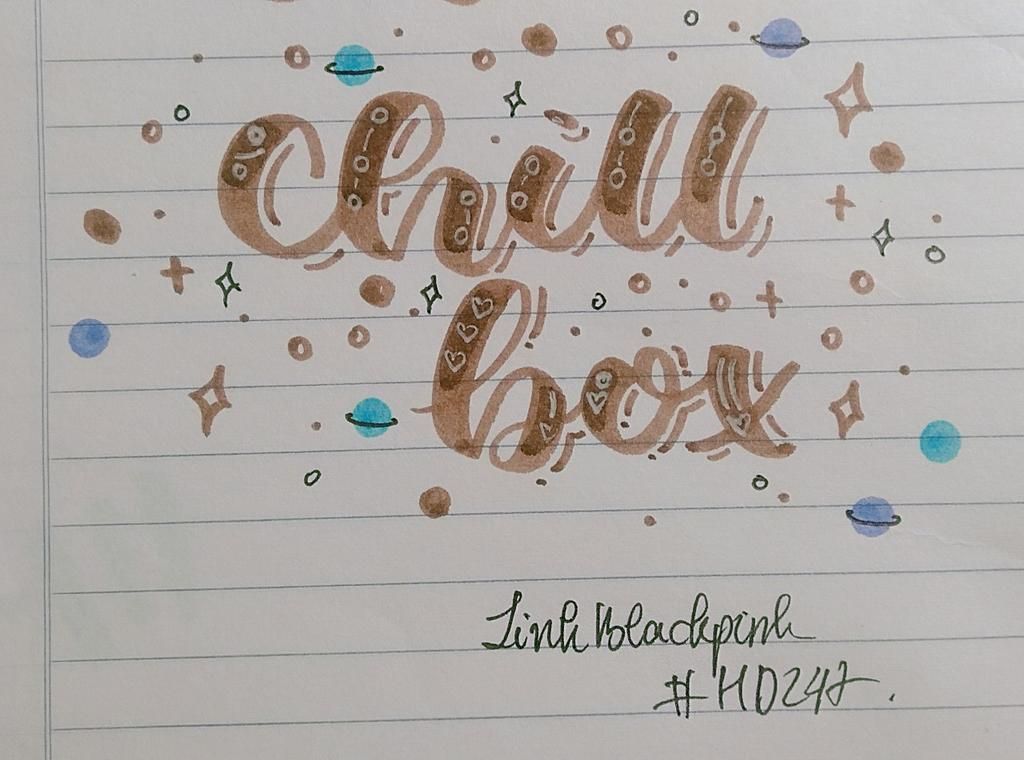 chill
box
LinhBlackpink
#HD247.